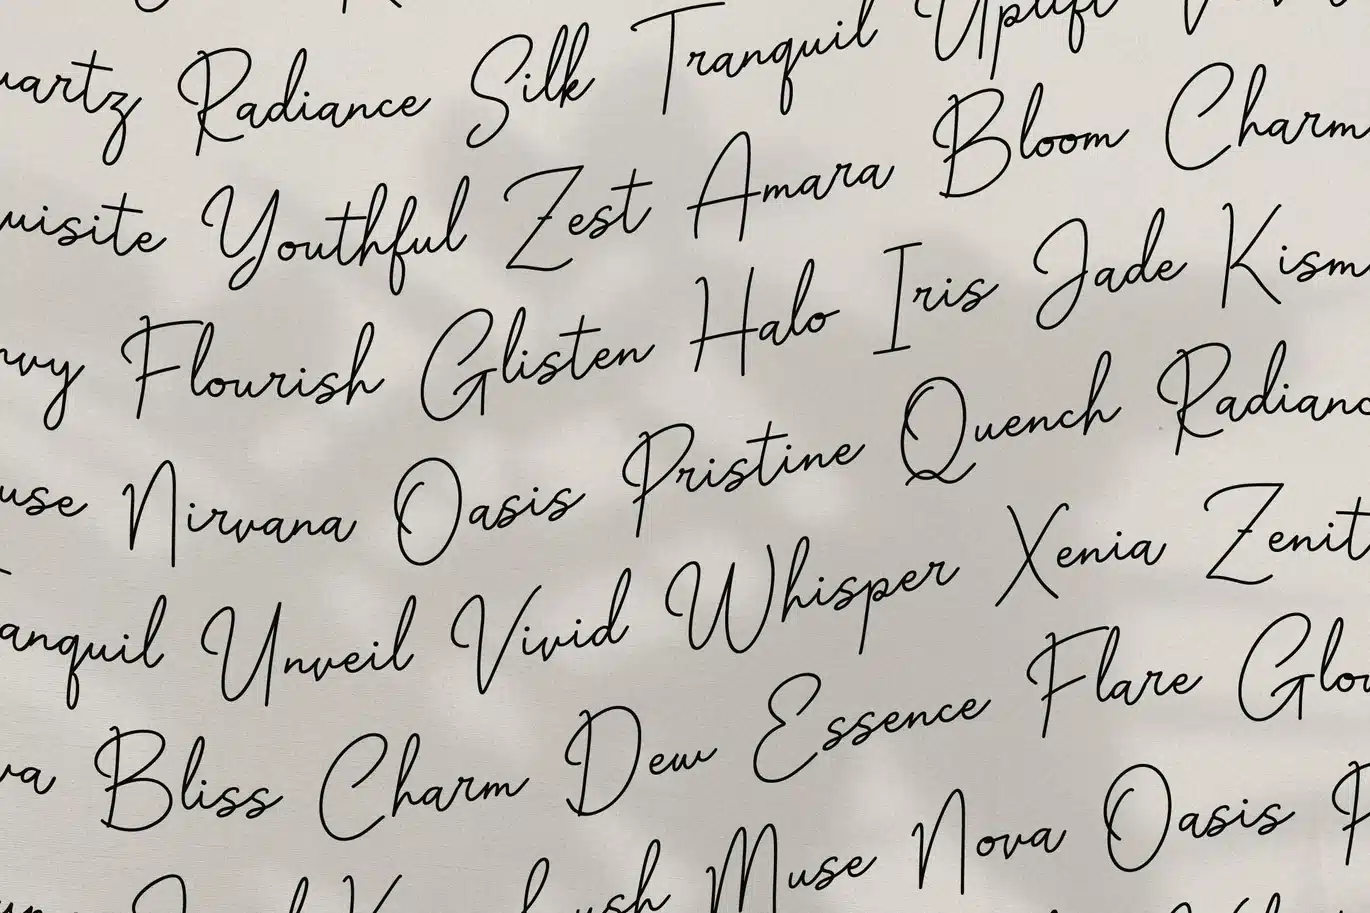 uartz Radiance Silk Tranquil Uplift
uisite Youthful Zest Amara Bloom Charm
nvy Flourish Glisten Halo Iris Jade Kism
use Nirvana Oasis Pristine Quench Radianc
anquil Unveil Vivid Whisper Xenia Zenit
va Bliss Charm Dew Essence Flare Glo
ush Muse Nova Oasis P